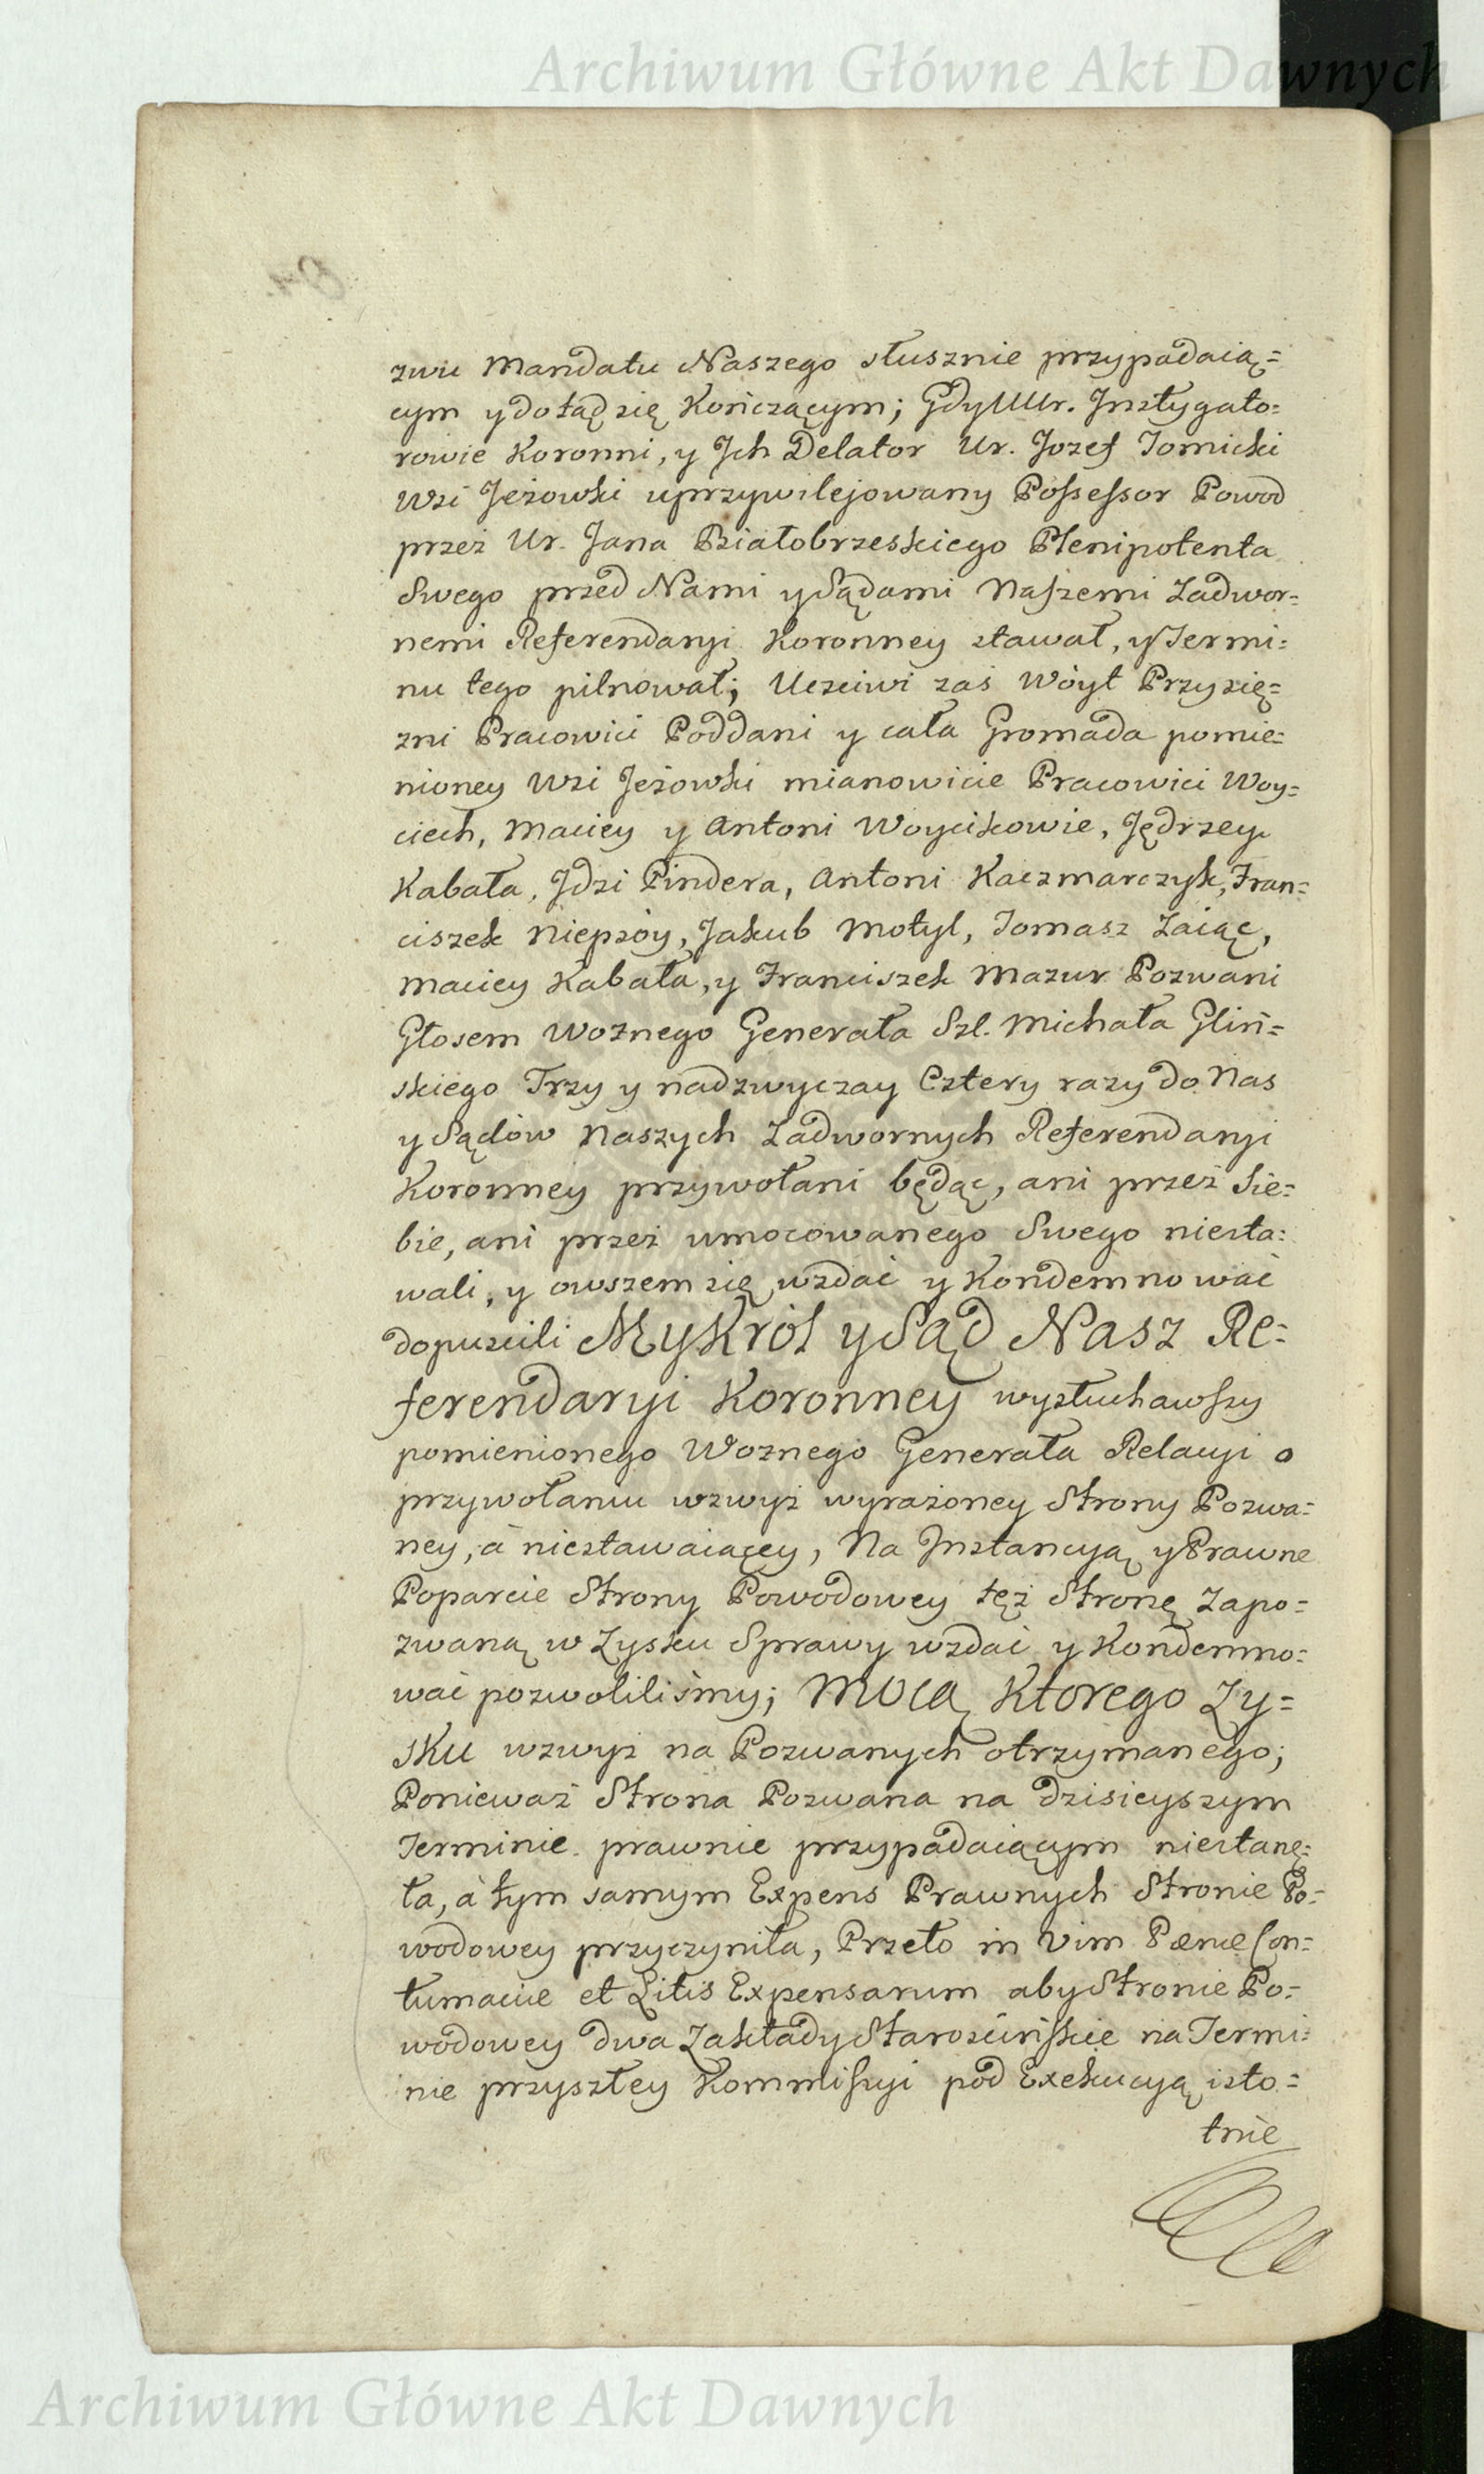 Archiwum Główne Akt Dawnych
zwu Mandatu Naszego słusznie przypadaią=
cym y dotąd się Kończącym; Gdy UUr. Jnstygato=
rowie Koronni, y Jch Delator Ur. Jozef Tomicki
Wsi Jeżowki uprzywilejowany Possessor Powod
przez Ur. Jana Białobrzeskiego Plenipotenta
Swego przed Nami y Sądami Naszemi Zadwor=
nemi Referendaryi Koronney stawał, y Termi=
nu tego pilnował; Uczciwi zaś Wóyt Przysię=
zni Pracowici Poddani y cała Gromada pomie=
nioney Wsi Jeżowki mianowicie Pracowici Woy=
ciech, Maciey y Antoni Woycikowie, Jędrzey
Kabała, Jdzi Pindera, Antoni Kaczmarczyk, Fran=
ciszek Niepsóy, Jakub Motyl, Tomasz Zaiąc,
Maciey Kabała, y Franciszek Mazur Pozwani
Głosem Woznego Generała Szl. Michała Gliń=
skiego Trzy y nadzwyczay Cztery razy do Nas
y Sądów Naszych Zadwornych Referendaryi
Koronney przywołani będąc, ani przez Sie=
bie, ani przez umocowanego Swego niesta=
wali, y owszem się wzdać y Kondemnować
dopuscili My Król y Sąd Nasz Re=
ferendaryi Koronney wysłuchawszy
pomienionego Woznego Generała Relacyi o
przywołaniu wzwyż wyrażoney Strony Pozwa=
ney, à niestawaiącey, Na Jnstancyą y Prawne
Poparcie Strony Powodowey też Stronę Zapo=
zwaną w Zysku Sprawy wzdać y Kondemno=
wać pozwoliliśmy; Mocą Ktorego Zy=
sku wzwyż na Pozwanych otrzymanego;
Ponieważ Strona Pozwana na dzisieyszym
Terminie prawnie przypadaiącym niestanę=
ła, à tym samym Expens Prawnych Stronie Po=
wodowey przyczyniła, Przeto in Vim Pœnæ Con=
tumaciæ et Litis Expensarum aby Stronie Po=
wodowey dwa Zakłady Starościńskie na Termi=
nie przyszłey Kommissyi pod Exekucyą isto=
tnie
Archiwum Główne Akt Dawnych